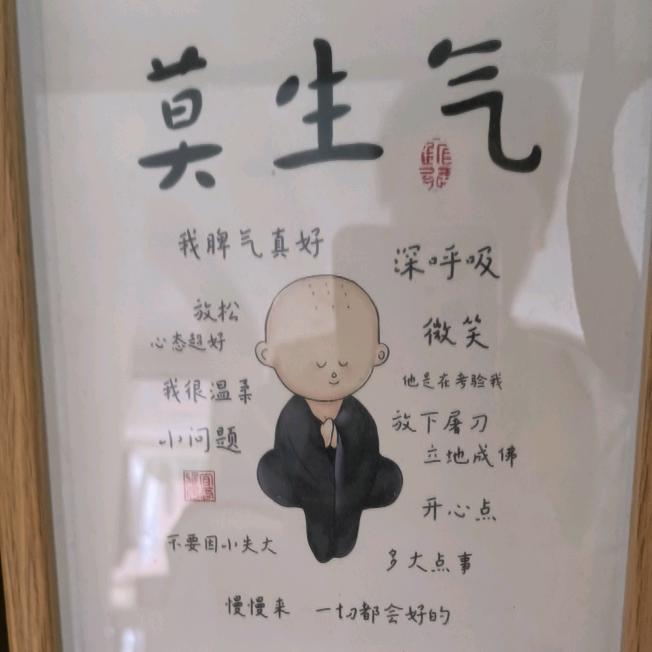 莫生气
我脾气真好
深呼吸
放松
微笑
心态超好
他是在考验我
我很温柔
放下屠刀
小问题
立地成佛
开心点
不要因小失大
多大点事
慢慢来 一切都会好的